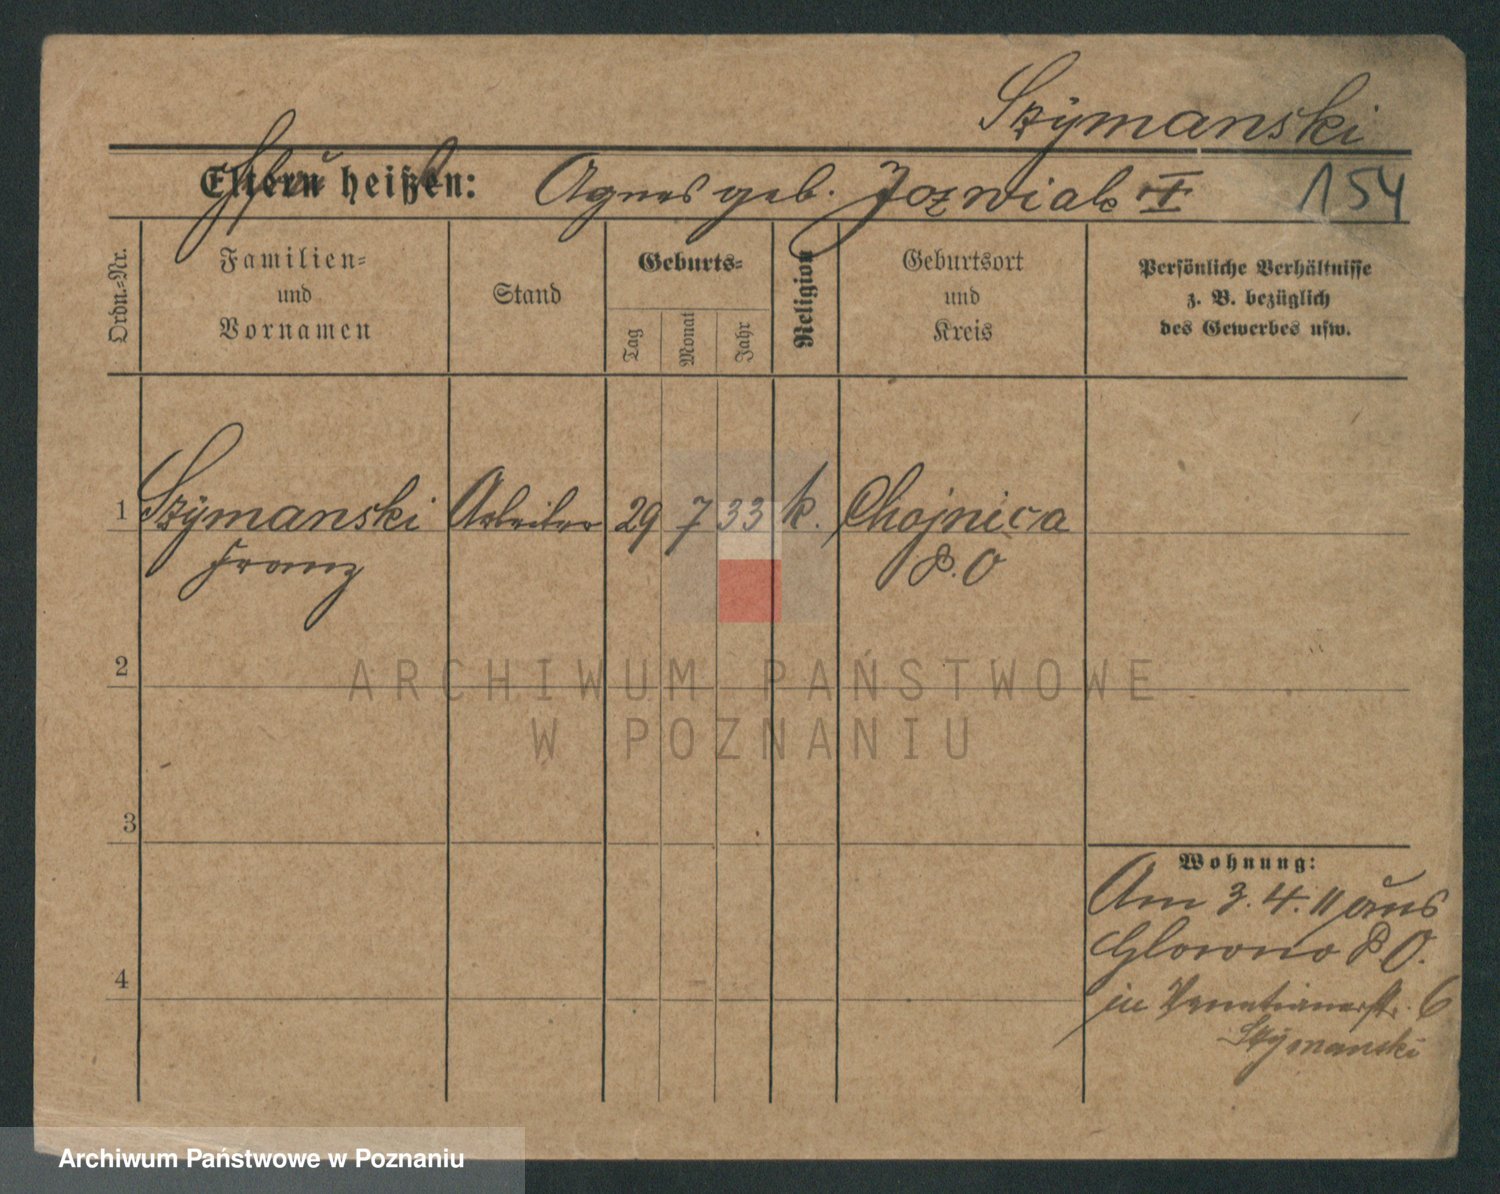 Szymanski
Eltern heißen: Agnes geb. Jozwiak † 154
Ordn.-Nr.
Familien-
und
Vornamen
Stand
Geburts-
Tag
Monat
Jahr
Religion
Geburtsort
und
Kreis
Persönliche Verhältnisse
z. B. bezüglich
des Gewerbes usw.
1 Szymanski Arbeiter 29 7 33 k. Chojnica
Franz P. O
2
ARCHIWUM PAŃSTWOWE
W POZNANIU
3
Wohnung:
Am 3. 4. 11 aus
Glowno P O.
4
in Venetianerstr. 6
Szymanski
Archiwum Państwowe w Poznaniu